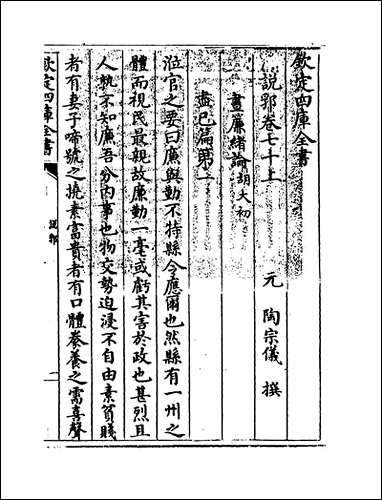 欽定四庫全書
說郛卷七十上
元 陶宗儀 撰
晝簾緒論 胡太初
盡己篇第一
涖官之要曰廉與勤不特縣令應爾也然縣有一州之
體而視民最親故廉勤一毫或虧其害於政也甚烈且
人孰不知廉吾分內事也物交勢迫浸不自由素貧賤
者有妻子啼號之撓素富貴者有口體豢養之需喜聲
欽定四庫全書
說郛